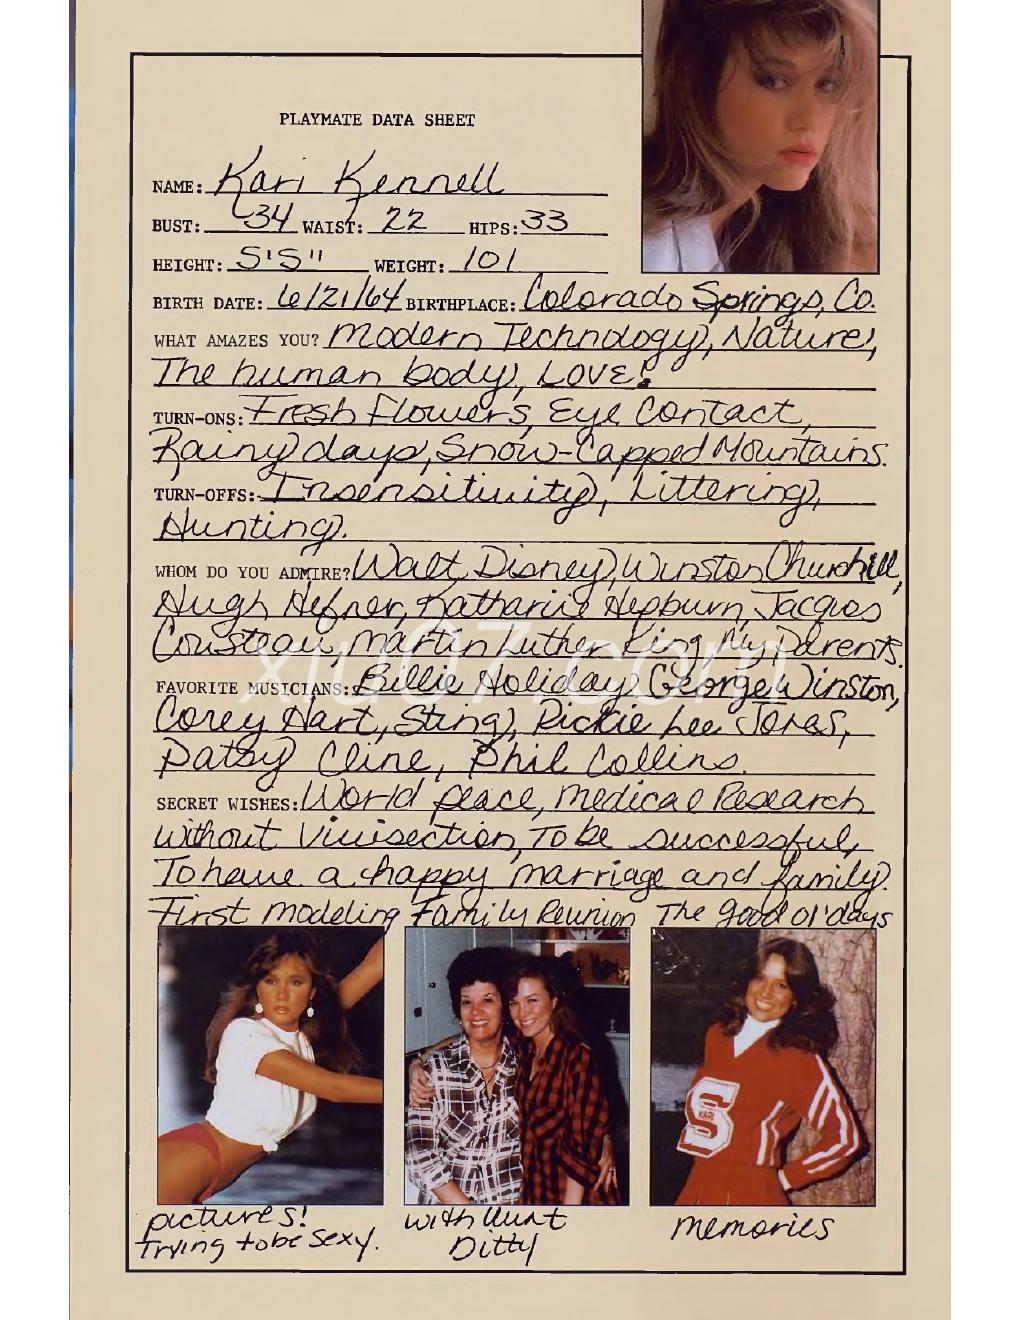 PLAYMATE DATA SHEET
NAME: Kari Kennell
BUST: 34 WAIST: 22 HIPS: 33
HEIGHT: 5'5" WEIGHT: 101
BIRTH DATE: 6/21/64 BIRTHPLACE: Colorado Springs, Co.
WHAT AMAZES YOU? Modern Technology, Nature,
The human body, LOVE!
TURN-ONS: Fresh Flowers, Eye Contact,
Rainy days, Snow-Capped Mountains.
TURN-OFFS: Insensitivity, Littering,
Hunting.
WHOM DO YOU ADMIRE? Walt Disney, Winston Churchill,
Hugh Hefner, Katharine Hepburn, Jacques
Cousteau, Martin Luther King, My Parents.
xiu07.com
FAVORITE MUSICIANS: Billie Holiday, George Winston,
Corey Hart, Sting, Rickie Lee Jones,
Patsy Cline, Phil Collins.
SECRET WISHES: World peace, Medical Research
without Vivisection, To be successful,
To have a happy marriage and family.
First modeling Family Reunion The good ol' days
S
KARI
pictures! with Aunt memories
Trying to be sexy. Ditty